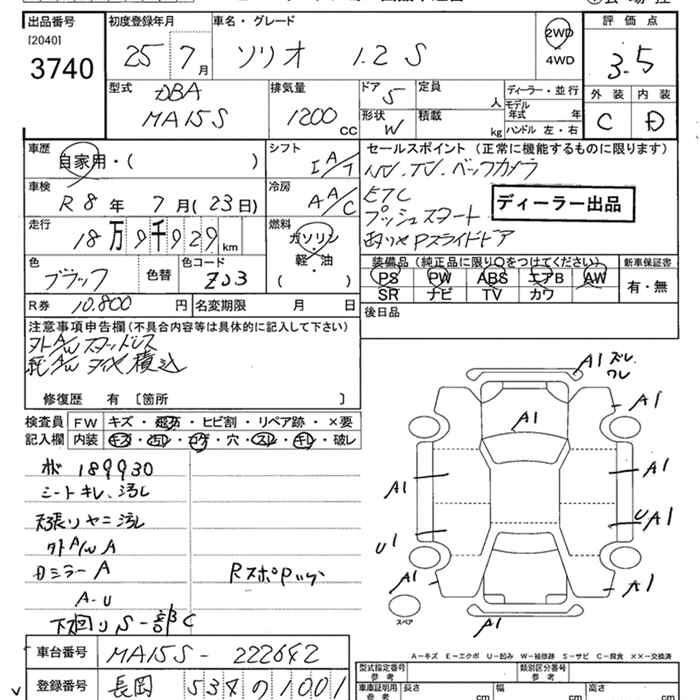 出品番号 初度登録年月 車名・グレード 評価点
[2040] 25 7月 ソリオ 1.2 S 2WD 4WD 3.5
3740
型式 DBA MA15S 排気量 1200 cc ドア 5 形状 W 定員 人 積載 kg ディーラー・並行 モデル年式 年式 ハンドル 左・右 外装 C 内装 D
車歴 自家用・( ) シフト IA/T セールスポイント (正常に機能するものに限ります)
車検 R8年 7月(23日) 冷房 AA/C
ナビ.TV.バックカメラ
ETC
プッシュスタート
両側Pスライドドア
ディーラー出品
走行 18万9千929km 燃料 ガソリン・軽・油
色 ブラック 色替 色コード ZJ3
装備品 (純正品に限り○をつけてください) 新車保証書
PS PW ABS エアB AW 有・無
SR ナビ TV カワ
R券 10.800円 名変期限 月 日
後日品
注意事項申告欄(不具合内容等は具体的に記入して下さい)
外A/W スタッドレス
純A/W タイヤ積込
修復歴 有 [箇所 ]
検査員記入欄 FW キズ・飛石・ヒビ割・リペア跡・×要
内装 キズ・汚レ・コゲ・穴・スレ・キレ・破レ
189930
シートキレ、汚レ
天張リヤニ汚レ
外A/W A
Dミラー A
A-U
下回りS-部C
A1 ズレ ワレ
A1
A1
A1
A1
A1
UA1
U1
A1
A1
A1
スペア
A-キズ E-エクボ U-凹み W-補修跡 S-サビ C-腐食 ××-交換済
車台番号 MA15S-222642
登録番号 長岡 534 の 1001
型式指定番号 参考 類別区分番号 参考
車庫証明用 参考 長さ cm 幅 cm 高さ cm